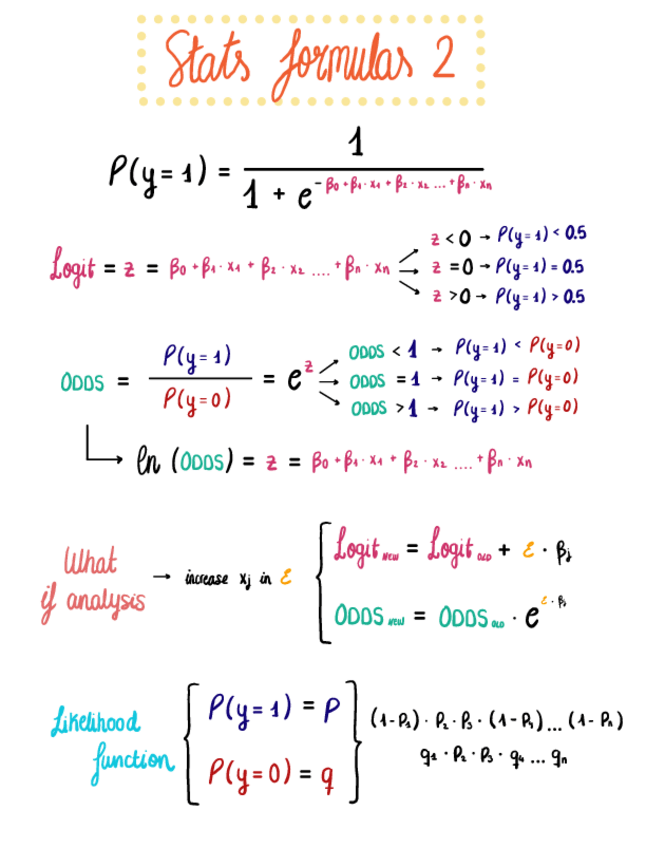 Stats formulas 2
P(y=1) = 1 / 1 + e^-β0+β1·x1+β2·x2...+βn·xn
Logit = z = β0+β1·x1+β2·x2....+βn·xn
z < 0 → P(y=1) < 0.5
z =0 → P(y=1) = 0.5
z >0 → P(y=1) > 0.5
ODDS = P(y=1) / P(y=0) = e^z
ODDS < 1 → P(y=1) < P(y=0)
ODDS =1 → P(y=1) = P(y=0)
ODDS >1 → P(y=1) > P(y=0)
ln (ODDS) = z = β0+β1·x1+β2·x2....+βn·xn
What
if analysis
→ increase xj in ε
Logit NEW = Logit OLD + ε · βj
ODDS NEW = ODDS OLD · e^ε·βj
Likelihood
function
P(y=1) = P
P(y=0) = q
(1-P1)·P2·P3·(1-P4)...(1-Pn)
q1·P2·P3·q4...qn